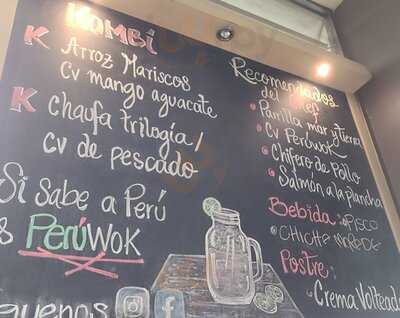 KOMBi
K Arroz Mariscos
Cv mango aguacate
K Chaufa trilogía /
Cv de pescado
Si Sabe a Perú
PERÚWOK
Recomendados
del Chef
• Parrilla mar y tierra
• Cv Perúwok
• Chifero de Pollo
• Salmón a la plancha
Bebida: • PISCO
• CHICHA
Postre:
• Crema Volteada